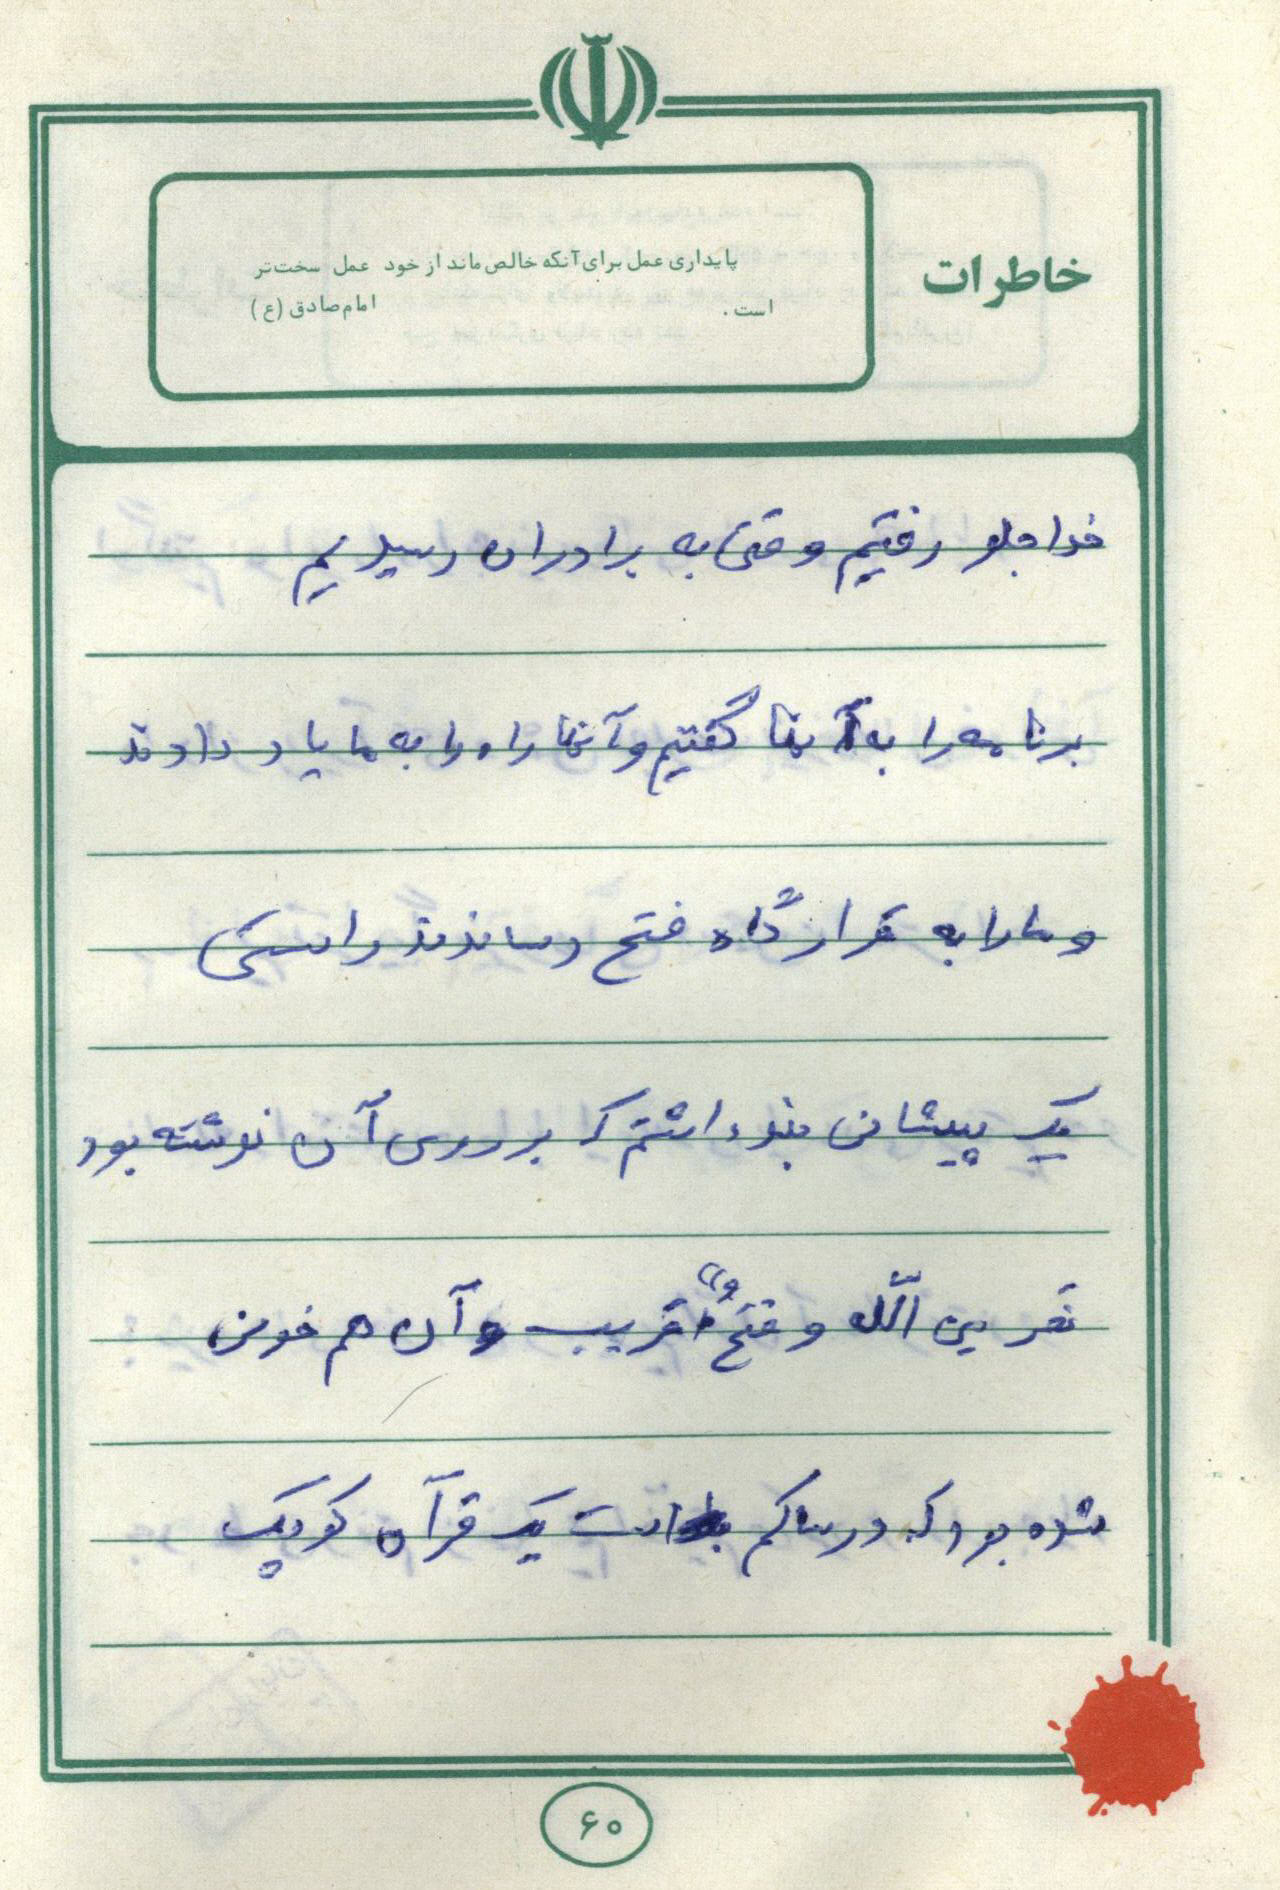 خاطرات
پایداری عمل برای آنکه خالص ماند از خود عمل سخت‌تر
است . امام صادق (ع)
خدا جلو رفتیم وقتی به برادران رسیدیم
برنامه را به آنها گفتیم و آنها راه را به ما یاد دادند
و ما را به قرارگاه فتح رساندند راستی
یک پیشانی بند داشتم که بر روی آن نوشته بود
نصر من اللّه و فتحٌ قریب و آن هم خونی
شده بود که در ساکم است یک قرآن کوچک
۶۰